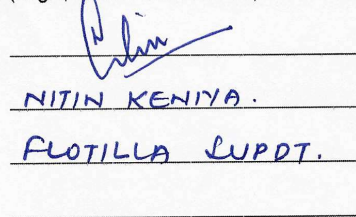 NITIN KENIYA.
FLOTILLA SUPDT.